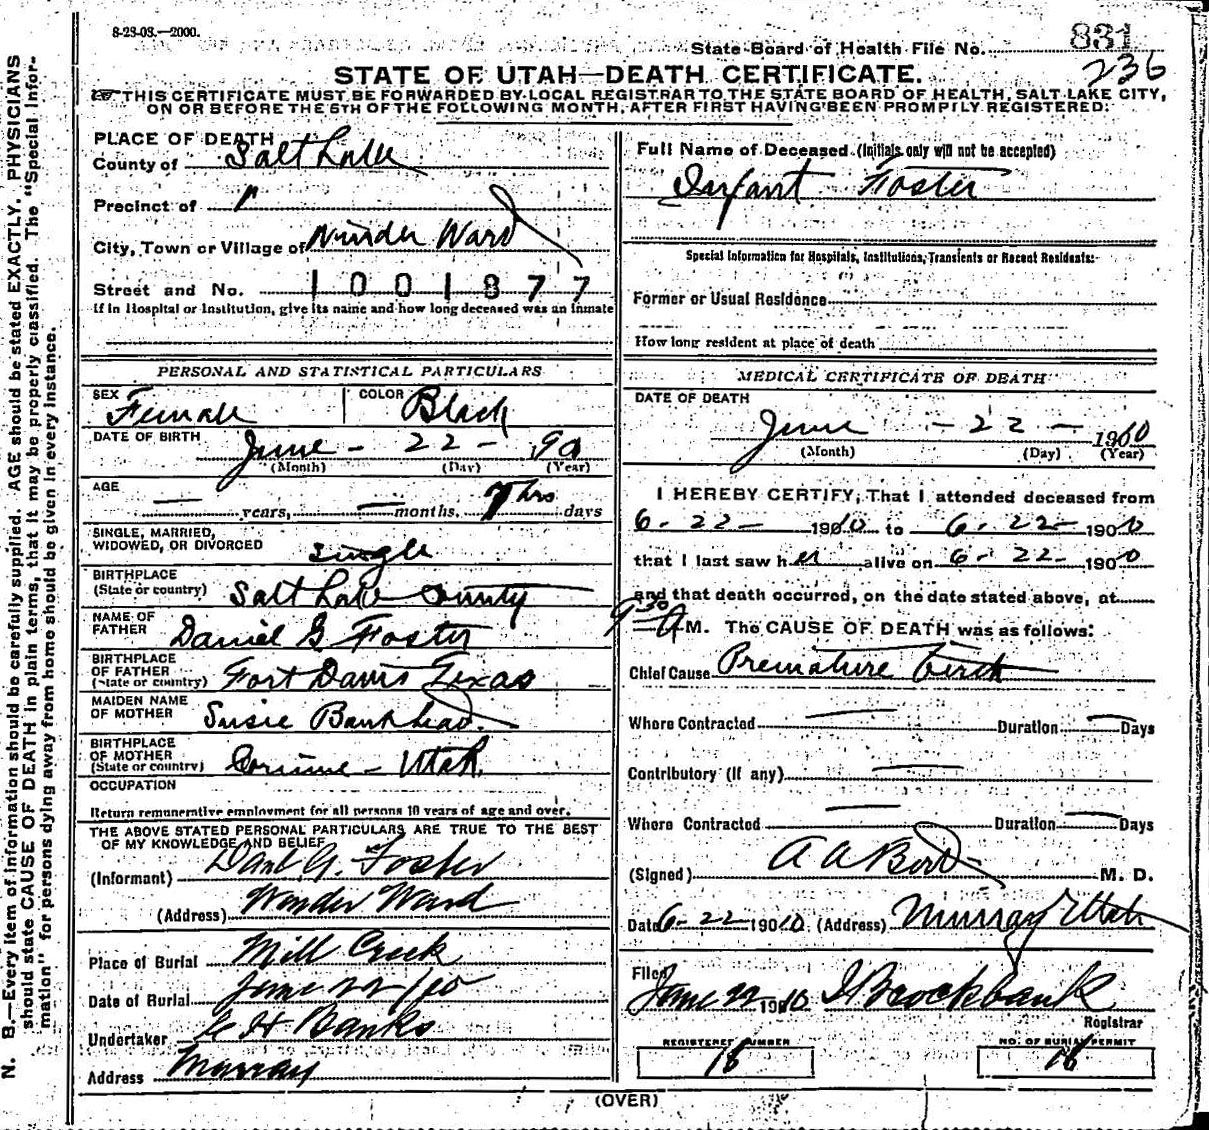 8-23-08.—2000.
State Board of Health File No. 831
236
STATE OF UTAH—DEATH CERTIFICATE.
THIS CERTIFICATE MUST BE FORWARDED BY LOCAL REGISTRAR TO THE STATE BOARD OF HEALTH, SALT LAKE CITY,
ON OR BEFORE THE 5TH OF THE FOLLOWING MONTH, AFTER FIRST HAVING BEEN PROMPTLY REGISTERED.
N. B.—Every item of information should be carefully supplied. AGE should be stated EXACTLY. PHYSICIANS
should state CAUSE OF DEATH in plain terms, that it may be properly classified. The "Special Infor-
mation" for persons dying away from home should be given in every instance.
PLACE OF DEATH
County of Salt Lake
Precinct of 1
City, Town or Village of Winder Ward
Street and No. 1001877
If in Hospital or Institution, give its name and how long deceased was an inmate
PERSONAL AND STATISTICAL PARTICULARS
SEX Female COLOR Black
DATE OF BIRTH June - 22 - 910
(Month) (Day) (Year)
AGE — years, — months, 7 hrs days
SINGLE, MARRIED,
WIDOWED, OR DIVORCED single
BIRTHPLACE
(State or country) Salt Lake County
NAME OF
FATHER Daniel G Foster
BIRTHPLACE
OF FATHER
(State or country) Fort Davis Texas
MAIDEN NAME
OF MOTHER Susie Bankhead
BIRTHPLACE
OF MOTHER
(State or country) Corinne - Utah.
OCCUPATION
Return remunerative employment for all persons 10 years of age and over.
THE ABOVE STATED PERSONAL PARTICULARS ARE TRUE TO THE BEST
OF MY KNOWLEDGE AND BELIEF
(Informant) Danl. G. Foster
(Address) Winder Ward
Place of Burial Mill Creek
Date of Burial June 22/10
Undertaker C H Banks
Address Murray
Full Name of Deceased (Initials only will not be accepted)
Infant Foster
Special Information for Hospitals, Institutions, Transients or Recent Residents:
Former or Usual Residence
How long resident at place of death
MEDICAL CERTIFICATE OF DEATH
DATE OF DEATH
June - 22 - 1910
(Month) (Day) (Year)
I HEREBY CERTIFY, That I attended deceased from
6-22- 1910 to 6-22- 1900
that I last saw her alive on 6-22- 1900
and that death occurred, on the date stated above, at
9 30 A M. The CAUSE OF DEATH was as follows:
Chief Cause Premature birth
Where Contracted — Duration — Days
Contributory (If any) —
Where Contracted — Duration — Days
(Signed) A A Bird M. D.
Date 6-22 1910 (Address) Murray Utah
Filed June 22 1910 Brockbank
Registrar
REGISTERED NUMBER
18
NO. OF BURIAL PERMIT
18
(OVER)